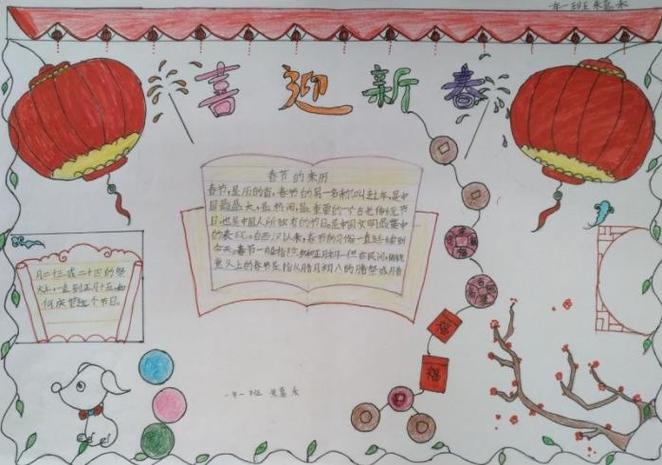 一年一班 朱嘉永
喜迎新春
春节的来历
春节,是历的首,春节的另一名称叫过年,是中
国最盛大,最热闹,最重要的一个古老传统节
日,也是中国人所独有的节日,是中国文明最集中
的表现。自西汉以来,春节的习俗一直延续到
今天,春节一般指除夕和正月初一。但在民间,传统
意义上的春节是指从腊月初八的腊祭或腊
月二十三或二十四的祭
灶,一直到正月十五,如
何庆贺这个节日。
福
福
一年一班 朱嘉永